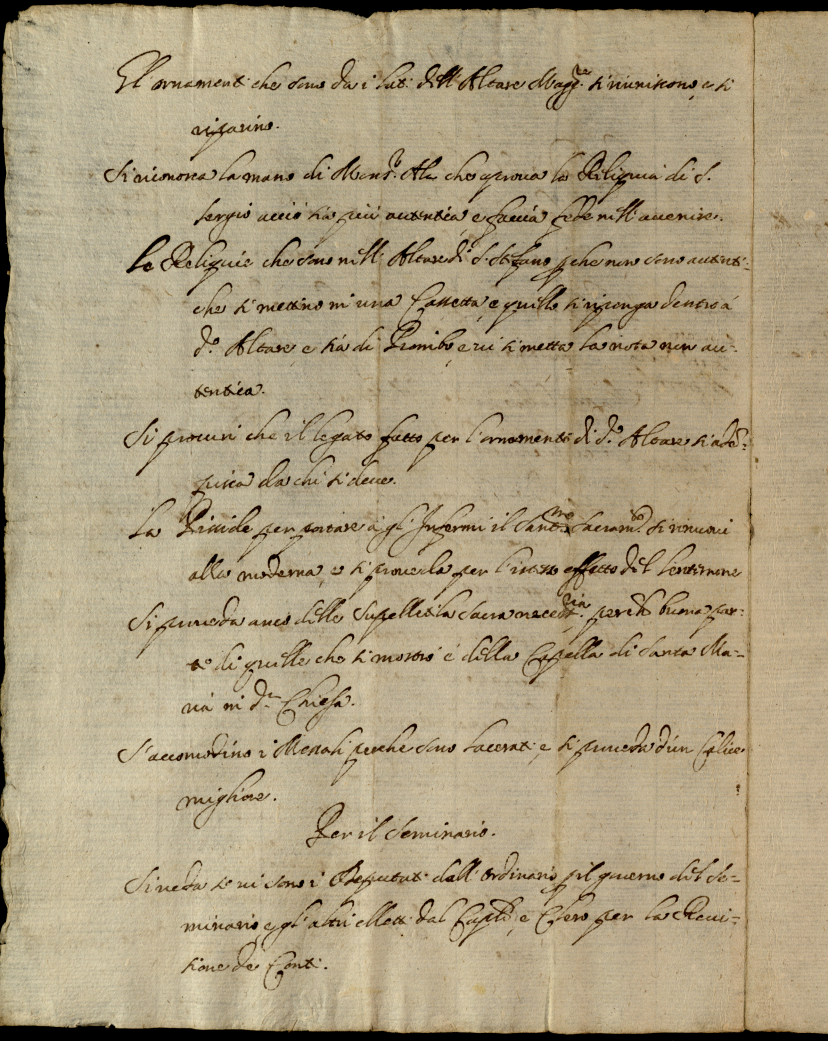 Gl'ornamenti che sono da i lati dell'Altare Magg.re si riuniscono, e si
risarino.
Si riconosca la mano di Mons.r che approva la Reliquia di S.
Sergio acciò sia più autentica e faccia fede nell'avenire.
Le Reliquie che sono nell'Altare di S. Stefano p che non sono autenti-
che si mettino in una Cassetta e quella si riponga dentro á
d.o Altare e sia di Piombo e vi si metta la nota non au-
tentica.
Si procuri che il legato fatto per l'ornamento di d.o Altare s'adē-
pisca da chi si deve.
La Pisside per portare a gl'Infermi il Santmo Sacramto si rinuovi
alla moderna, e si proveda per l'istesso effetto del
Si proveda anco della Supellettila Sacra necessria perche buona par-
te di quelle che si mostrò é della Capella di Santa Ma-
ria in d.a Chiesa.
S'accomodino i Messali perche sono lacerati e si proveda d'un Calice
migliore.
Per il Seminario.
Si veda se vi sono i Deputati dall'Ordinario p il governo del Se-
minario e gl'altri eletti dal Caplo e Clero per la Revi-
sione de Conti.